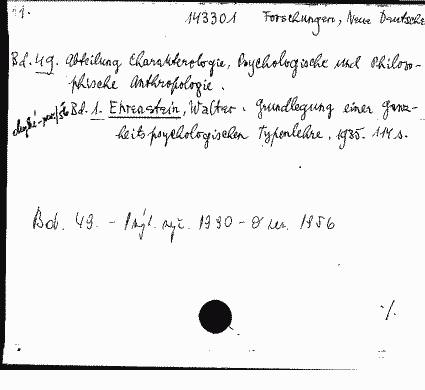 11.
143301 Forschungen, Neue Deutsche
Bd. 49. Abteilung Charakterologie, Psychologische und Philoso-
phische Anthropologie.
Bd. 1. Ehrenstein, Walter. Grundlegung einer ganz-
heitspsychologischen Typenlehre. 1935. 114 s.
Bd. 49. - 1930 - 1956
./.